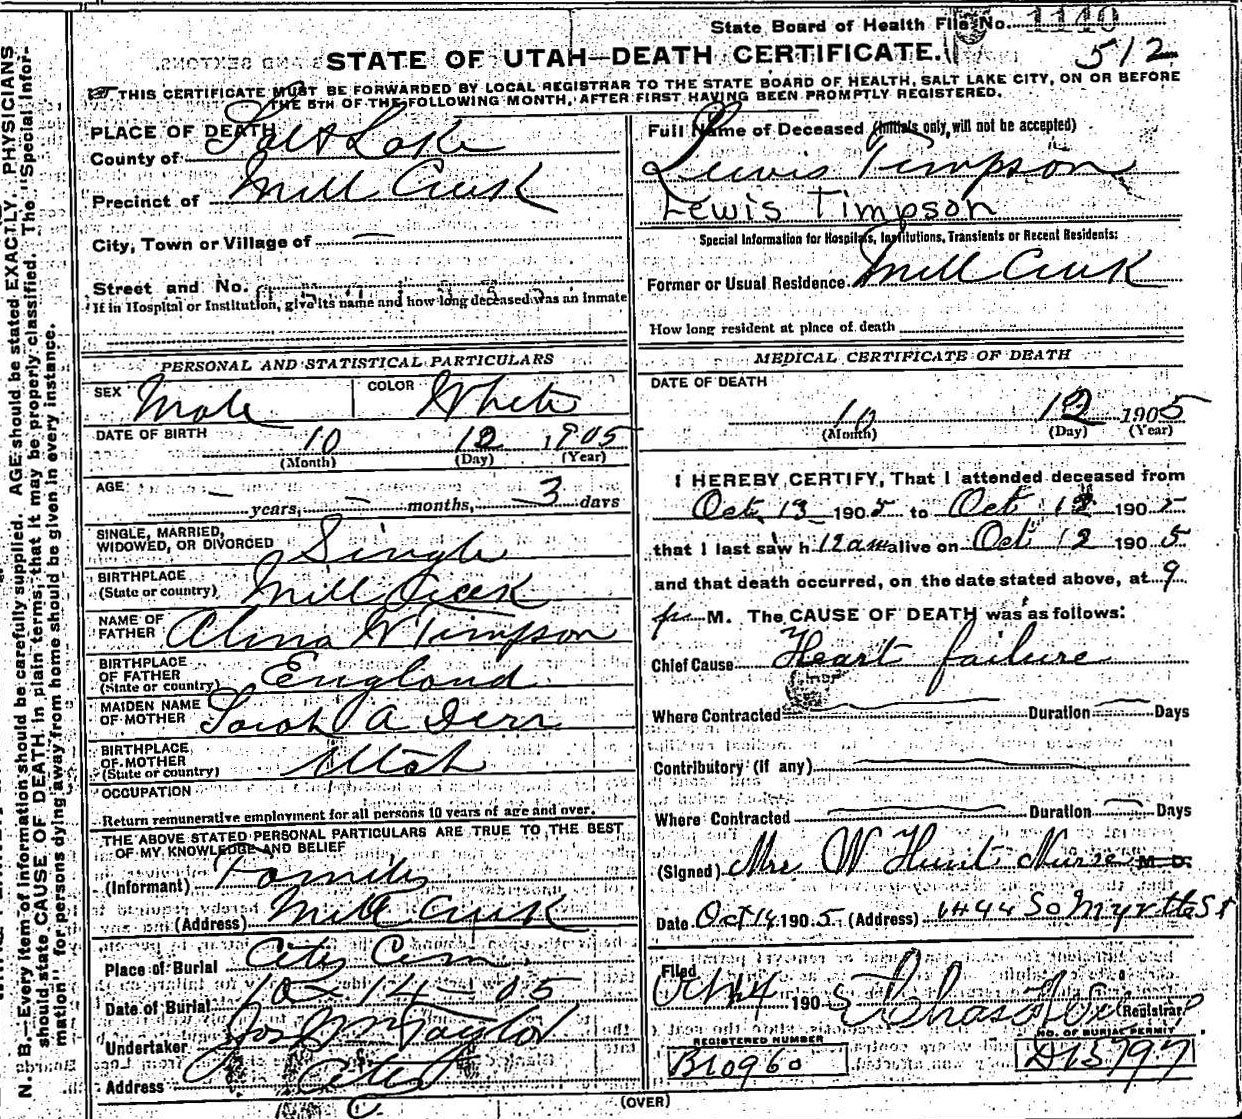 State Board of Health File No. 1140
STATE OF UTAH—DEATH CERTIFICATE. 512
THIS CERTIFICATE MUST BE FORWARDED BY LOCAL REGISTRAR TO THE STATE BOARD OF HEALTH, SALT LAKE CITY, ON OR BEFORE
THE 5TH OF THE FOLLOWING MONTH, AFTER FIRST HAVING BEEN PROMPTLY REGISTERED.
PLACE OF DEATH
County of Salt Lake
Precinct of Mill Creek
City, Town or Village of —
Street and No.
If in Hospital or Institution, give its name and how long deceased was an inmate
PERSONAL AND STATISTICAL PARTICULARS
SEX Male COLOR White
DATE OF BIRTH 10 12 1905
(Month) (Day) (Year)
AGE — years, — months, 3 days
SINGLE, MARRIED,
WIDOWED, OR DIVORCED Single
BIRTHPLACE
(State or country) Mill Creek
NAME OF
FATHER Alma W Timpson
BIRTHPLACE
OF FATHER
(State or country) England
MAIDEN NAME
OF MOTHER Sarah A Derr
BIRTHPLACE
OF MOTHER
(State or country) Utah
OCCUPATION
Return remunerative employment for all persons 10 years of age and over.
THE ABOVE STATED PERSONAL PARTICULARS ARE TRUE TO THE BEST
OF MY KNOWLEDGE AND BELIEF
(Informant) Family
(Address) Mill Creek
Place of Burial City Cem
Date of Burial 10 - 14 - 05
Undertaker Jos Wm Taylor
Address City
Full Name of Deceased (Initials only, will not be accepted)
Lewis Timpson
Lewis Timpson
Special Information for Hospitals, Institutions, Transients or Recent Residents:
Former or Usual Residence Mill Creek
How long resident at place of death
MEDICAL CERTIFICATE OF DEATH
DATE OF DEATH
10 12 1905
(Month) (Day) (Year)
I HEREBY CERTIFY, That I attended deceased from
Oct 13 1905 to Oct 12 1905
that I last saw h 12 am alive on Oct 12 1905
and that death occurred, on the date stated above, at 9
p M. The CAUSE OF DEATH was as follows:
Chief Cause Heart failure
Where Contracted Duration — Days
Contributory (If any)
Where Contracted Duration — Days
(Signed) Mrs W Hunt Nurse M. D.
Date Oct 14 1905 (Address) 1444 So Myrtle St
Filed
Oct 14 1905 Chas Registrar
REGISTERED NUMBER
B10960
NO. OF BURIAL PERMIT
D15797
(OVER)
N. B.—Every item of information should be carefully supplied. AGE should be stated EXACTLY. PHYSICIANS
should state CAUSE OF DEATH in plain terms, that it may be properly classified. The "Special Infor-
mation" for persons dying away from home should be given in every instance.